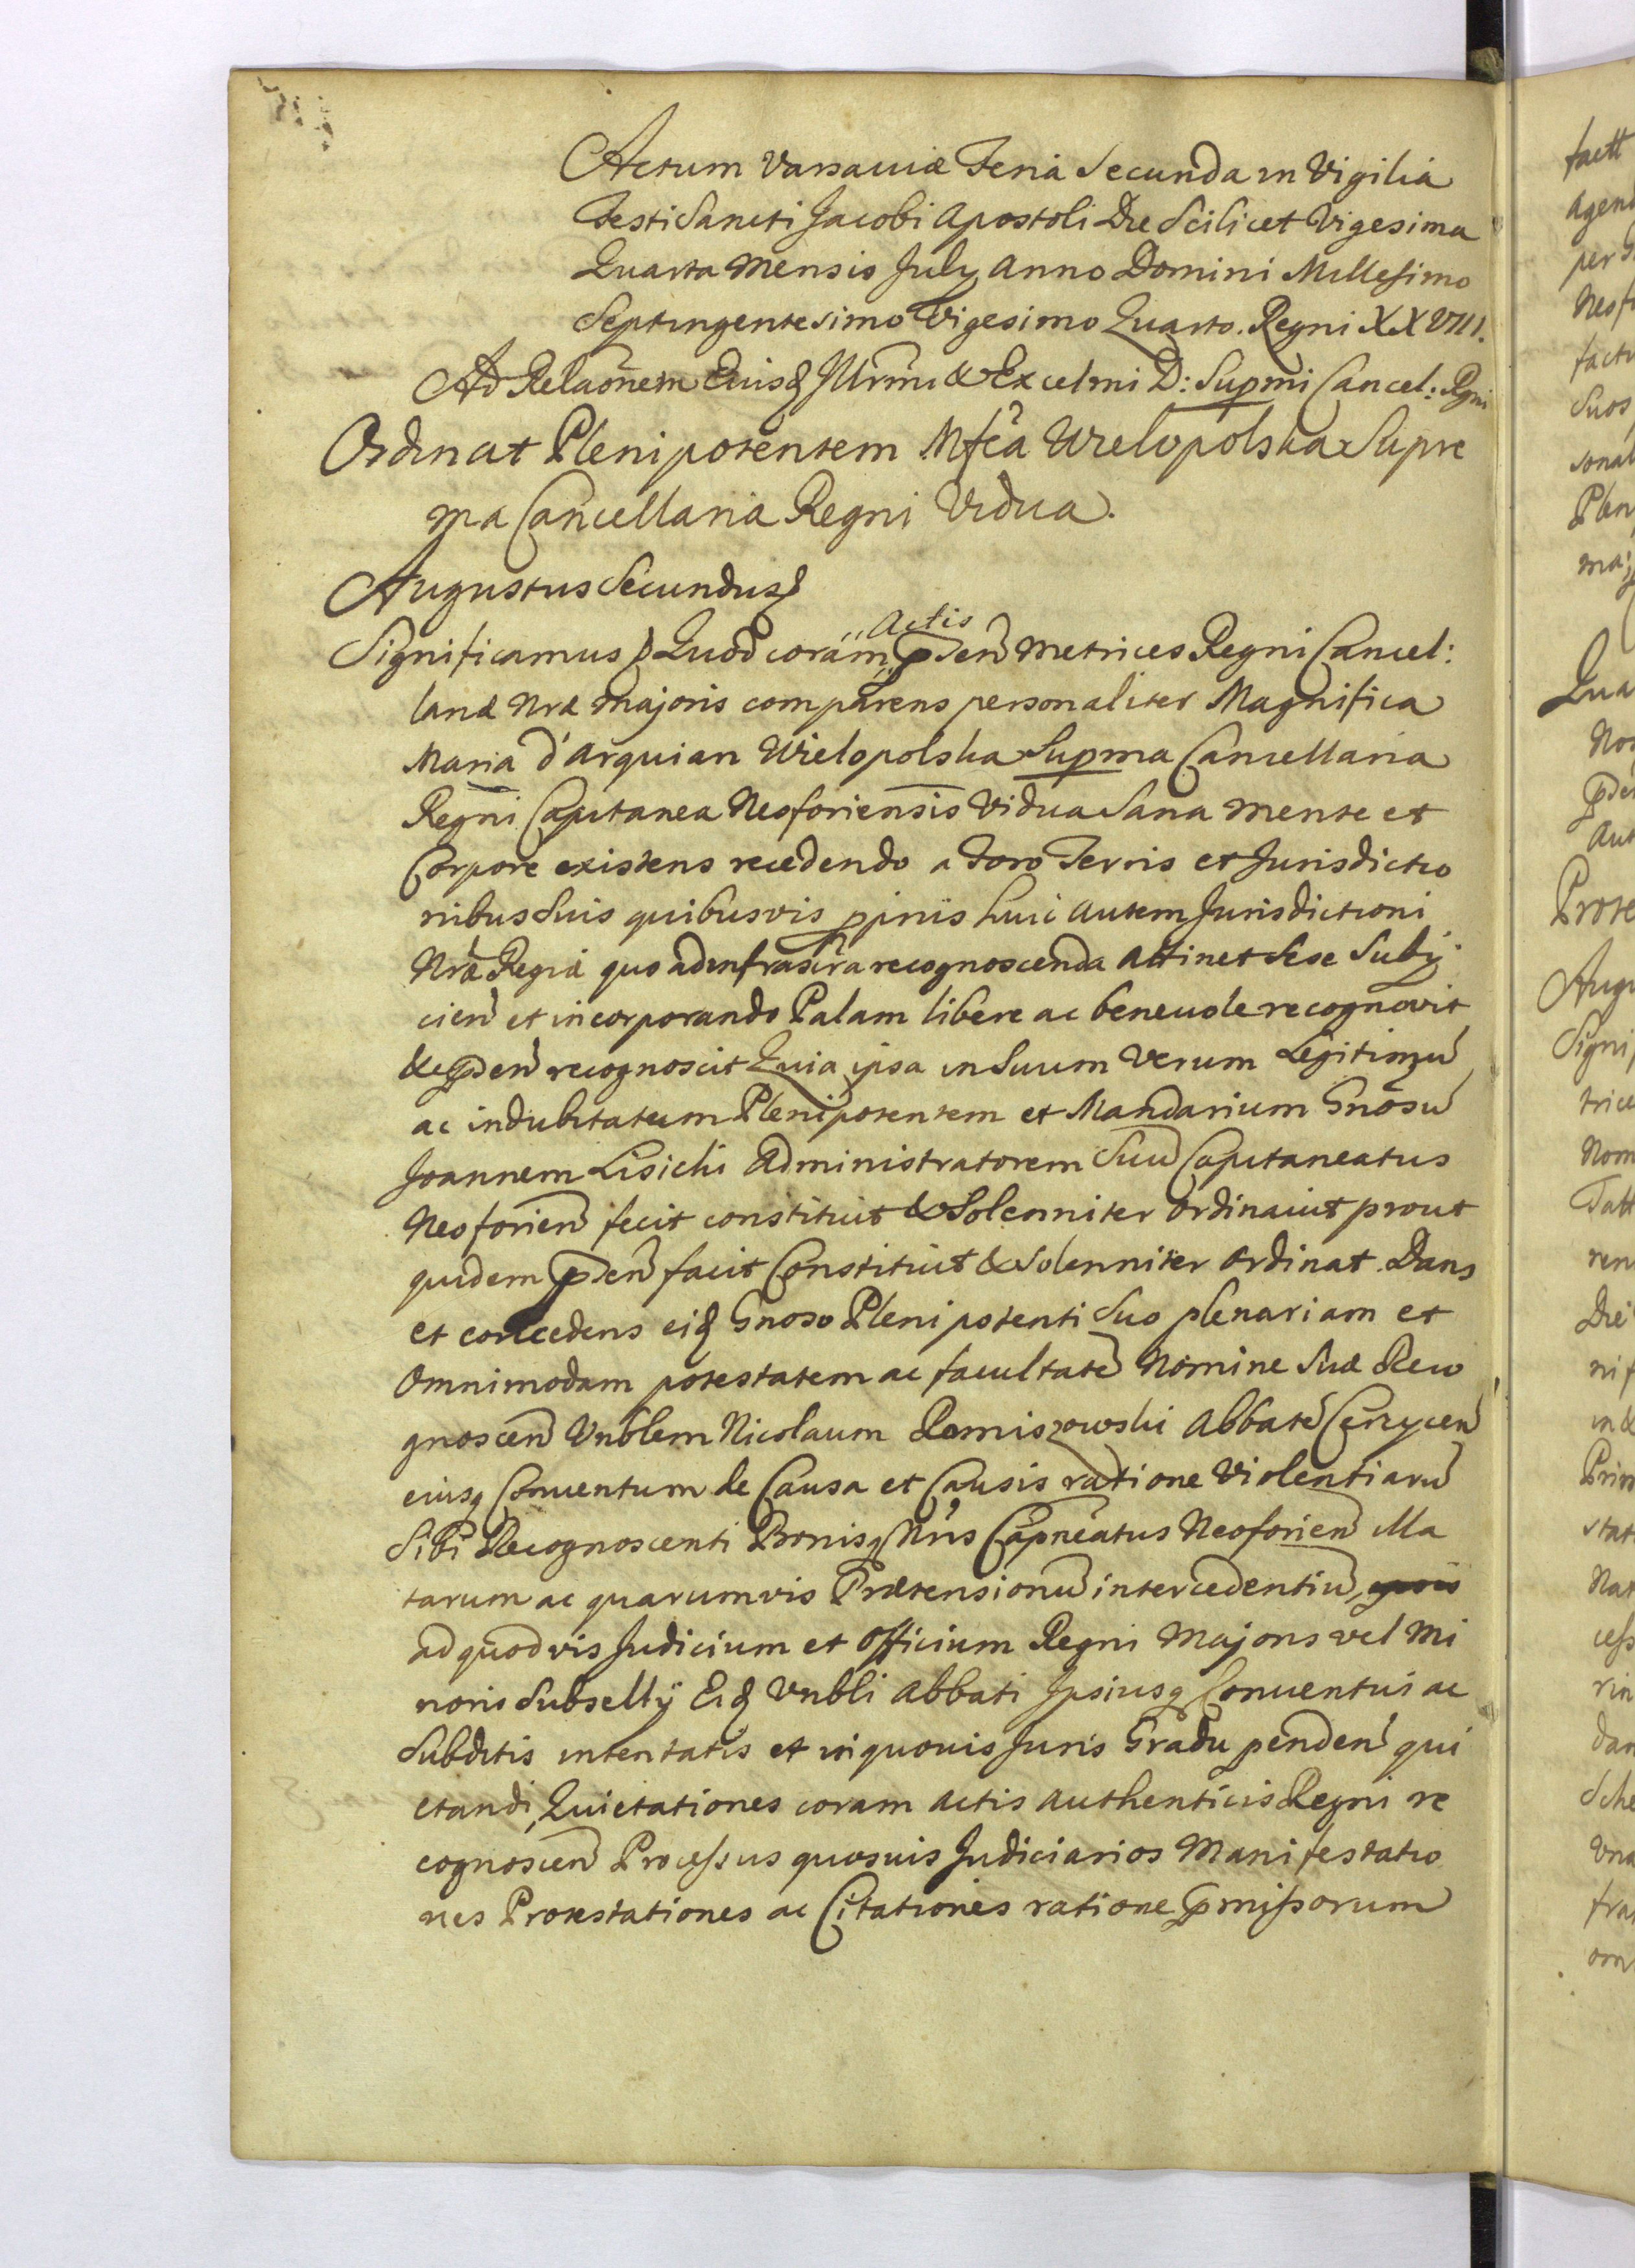 Actum Varsaviæ Feria Secunda in Vigilia
Festi Sancti Jacobi Apostoli Die Scilicet Vigesima
Quarta Mensis July Anno Domini Millesimo
Septingentesimo Vigesimo Quarto. Regni XXVIII.
Ad Relaõnem Eiusd Illrmi & Excelmi D: Supmi Cancel: Rgni
Ordinat Plenipotentem Mfca Wielopolska Supre
ma Cancellaria Regni Vidua.
Augustus Secundus
Significamus Quod coram Actis pñ Metrices Regni Cancel:
lariæ Nræ Majoris comparens personaliter Magnifica
Maria d'Arquian Wielopolska Supma Cancellaria
Regni Capitanea Neoforiensis Vidua Sana mente et
Corpore existens recedendo a Foro Terris et Jurisdictio
nibus Suis quibusvis ppriis huic autem Jurisdictioni
Nræ Regiæ quo ad infrascra recognoscenda attinet Sese Subij
cien et incorporando Palam libere ac benevole recognovit
& pden recognoscit Quia ipsa in Suum Verum Legitimu
ac indubitatum Plenipotentem et Mandarium Gnosu
Joannem Lisicki Administratorem Suu Capitaneatus
Neoforien fecit constituit & Solenniter ordinavit prout
quidem pden facit Constituit & Solenniter ordinat. Dans
et concedens eid Gnoso Plenipotenti Suo plenariam et
Omnimodam potestatem ac facultate Nomine Suæ Reco
gnoscen Vnblem Nicolaum Romiszowski Abbate Czerzycen
eiusq Conuentum de Causa et Causis ratione Violentiaru
Sibi Recognoscenti Bonisq Nris Capneatus Neoforien illa
tarum ac quarumvis Prætensionu intercedentiu
ad quodvis Judicium et Officium Regni Majoris vel Mi
noris Subsellÿ Eid Vnbli Abbati Ipsiusq Conuentui ac
Subditis intentatis et in quouis Juris Gradu penden qui
etandi, Quietationes coram actis authenticis Regni re
cognoscen Processus quosuis Judiciarios Manifestatio
nes Protestationes ac Citationes ratione pmissorum